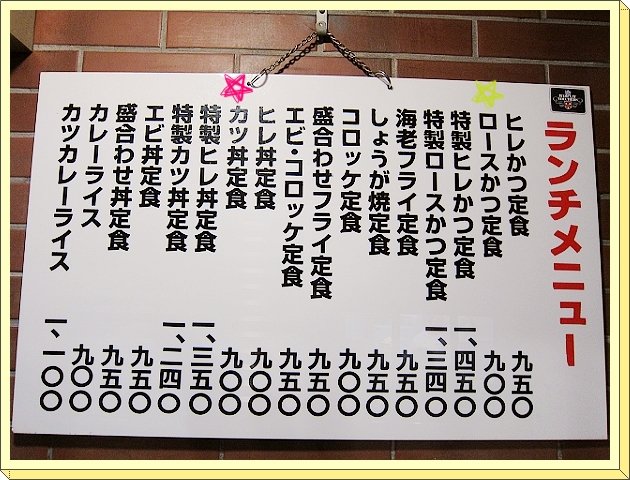 ランチメニュー
ヒレかつ定食 九五〇
ロースかつ定食 九〇〇
特製ヒレかつ定食 一、四五〇
特製ロースかつ定食 一、三四〇
海老フライ定食 九五〇
しょうが焼定食 九五〇
コロッケ定食 九〇〇
盛合わせフライ定食 九五〇
エビ・コロッケ定食 九五〇
ヒレ丼定食 九〇〇
カツ丼定食 九〇〇
特製ヒレ丼定食 一、三五〇
特製カツ丼定食 一、二四〇
エビ丼定食 九五〇
盛合わせ丼定食 九五〇
カレーライス 九〇〇
カツカレーライス 一、一〇〇